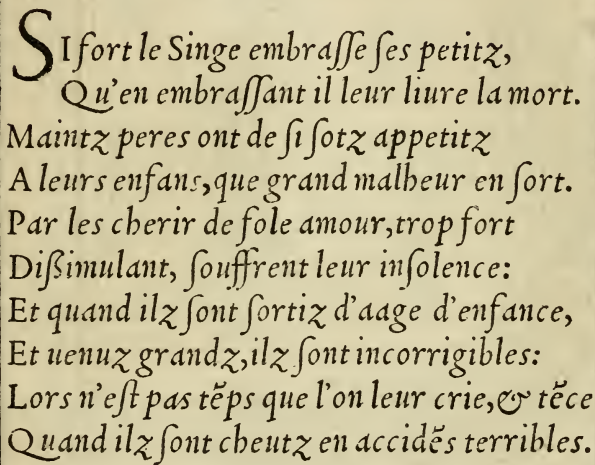 SI fort le Singe embraſſe ſes petitz,
Qu'en embraſſant il leur liure la mort.
Maintz peres ont de ſi ſotz appetitz
A leurs enfans, que grand malheur en ſort.
Par les cherir de fole amour, trop fort
Diſsimulant, ſouffrent leur inſolence:
Et quand ilz ſont ſortiz d'aage d'enfance,
Et uenuz grandz, ilz ſont incorrigibles:
Lors n'eſt pas tẽps que l'on leur crie, & tẽce
Quand ilz ſont cheutz en accidẽs terribles.